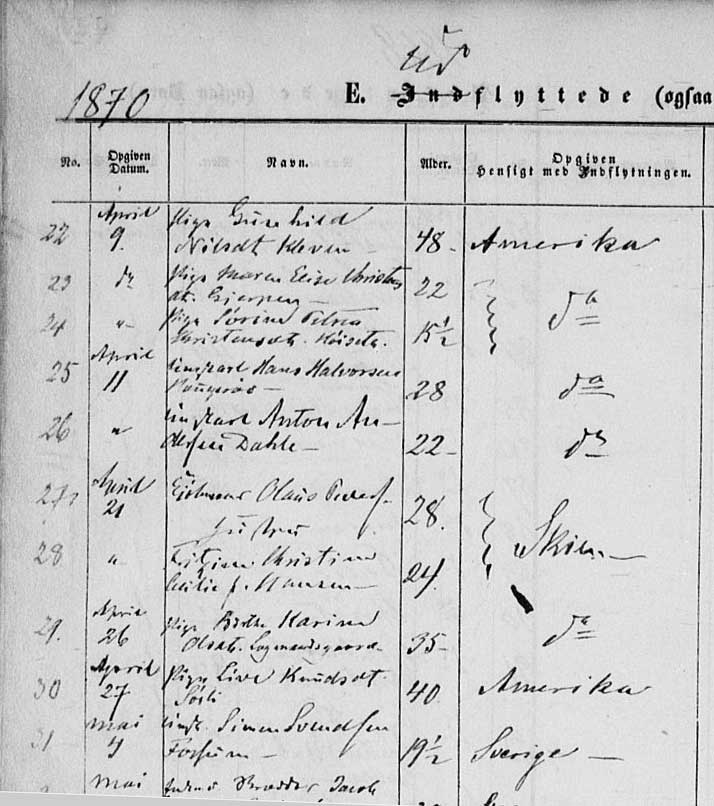 ud
1870
E. Indflyttede (ogsaa
No.
Opgiven
Datum.
Navn.
Alder.
Opgiven
Hensigt med Indflytningen.
22
April
9.
Pige Gunhild
Nilsdt Kleven
48
Amerika
23
do
Pige Maren Elise Christens
dt. Gjerpen
22
da
24
Pige Sørine Petrea
Christensdt.
15 1/2
25
April
11
Ungkarl Hans Halvorsen
28
da
26
Ungkarl Anton An-
dersen Dahle
22
do
27
April
21
Olaus
Hustru
28
28
Christine
f. Hansen
24
Skien
29.
April
26
Pige Birthe Karine
Olsdt. Lagmandsgaard
35
da
30
April
27
Pige Live Knudsdt.
40
Amerika
31
Mai
4
Ungk. Simen Svendsen
Fossum
19 1/2
Sverige
Mai
Jacob